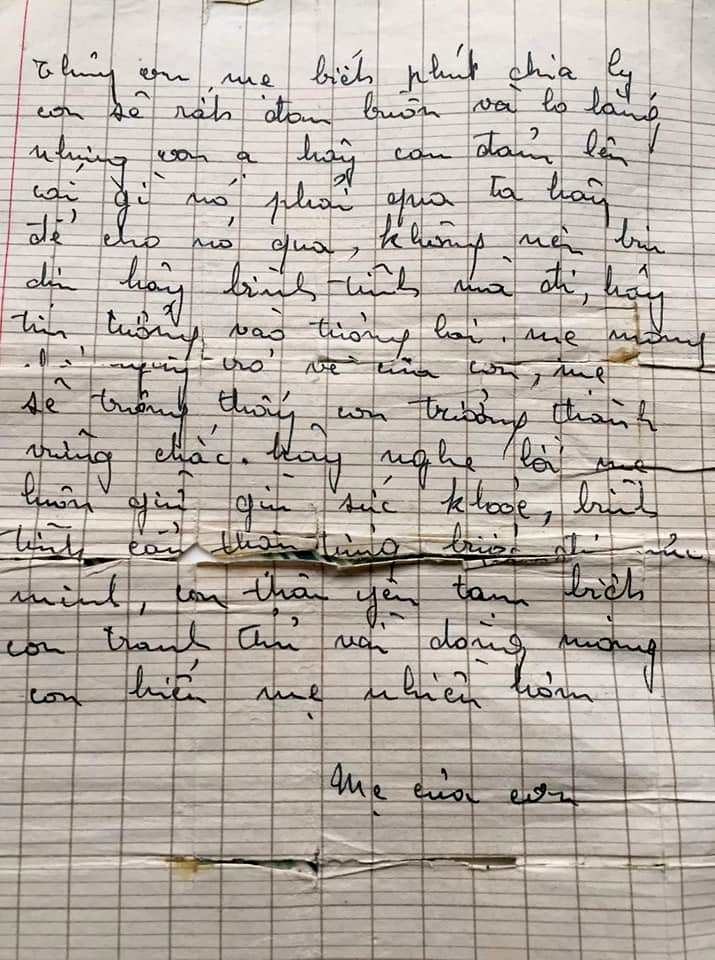 Thủy con, mẹ biết phút chia ly
con sẽ rất đau buồn và lo lắng
nhưng con ạ hãy can đảm lên
cái gì nó phải qua ta hãy
để cho nó qua, không nên bịn
dịn hãy bình tĩnh mà đi, hãy
tin tưởng vào tương lai. mẹ mong
ngày trở về của con, mẹ
sẽ trông thấy con trưởng thành
vững chắc. hãy nghe lời mẹ
luôn giữ gìn sức khỏe, bình
tĩnh cẩn thận từng bước đi của
mình, con thân yêu tạm biệt
con tranh thủ vài dòng mong
con hiểu mẹ nhiều hơn
Mẹ của con